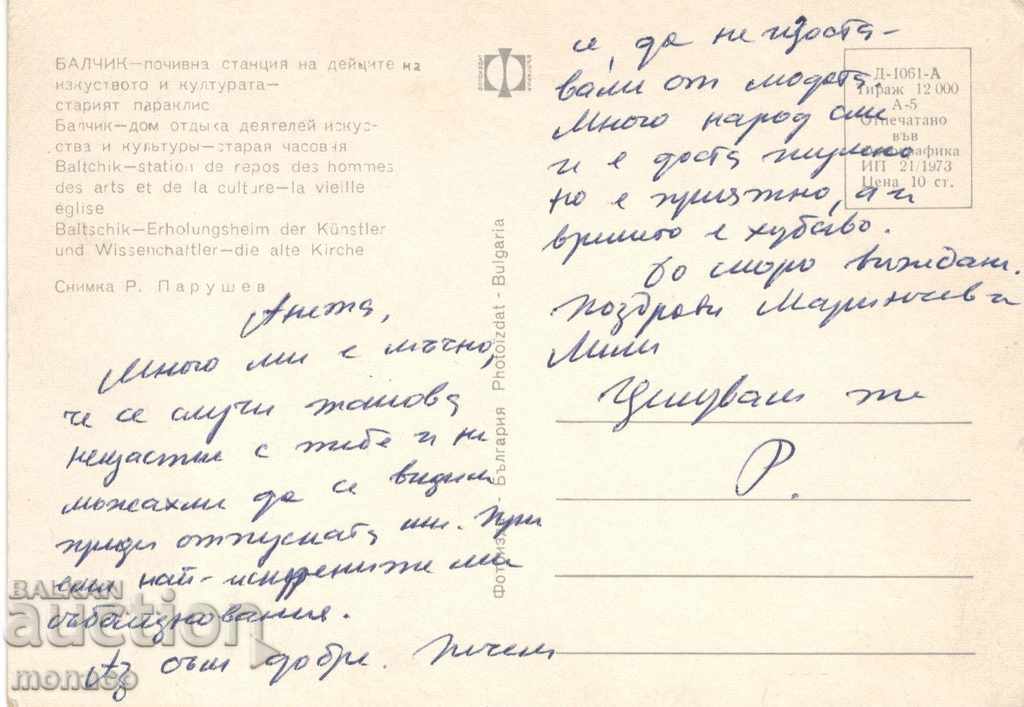 БАЛЧИК—почивна станция на дейците на
изкуството и културата—
старият параклис
Балчик—дом отдыха деятелей искус-
ства и культуры—старая часовня
Baltchik—station de repos des hommes
des arts et de la culture—la vieille
église
Baltschik—Erholungsheim der Künstler
und Wissenchaftler—die alte Kirche
Снимка Р. Парушев
Анета,
Много ми е мъчно,
че се случи такова
нещастие с тебе и не
можахме да се видим
преди отпуската ми. При
еми най-искрените ми
съболезнования.
Аз съм добре. Печем
Фотоиздат - България Photoizdat - Bulgaria
се, да не изоста-
вам от модата.
Много народ има
и е доста шумно
но е приятно, а и
времето е хубаво.
До скоро виждане.
Поздрави Маринчева и
Мими
Целувам те
Р.
Д-1061-А
Тираж 12 000
А-5
Отпечатано
във
ИП 21/1973
Цена 10 ст.
BALKAN
auction
monaco